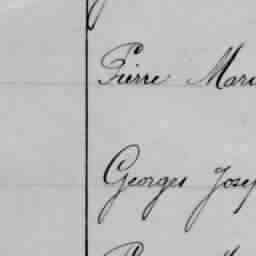 Pierre Mari
Georges Josep